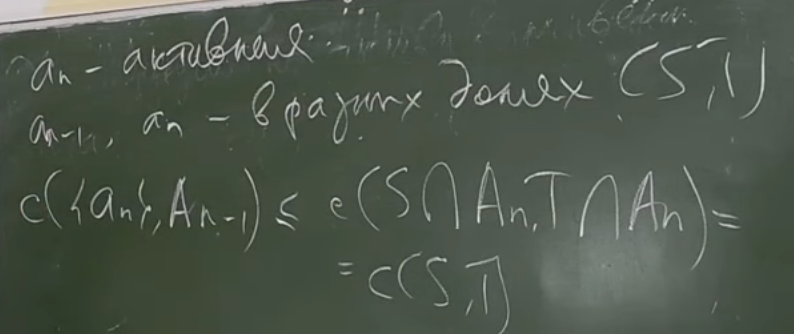 aₙ - активная
aₙ₋₁, aₙ - в разных долях (S,T)
c({aₙ}, Aₙ₋₁) ≤ c(S∩Aₙ, T∩Aₙ) =
= c(S,T)